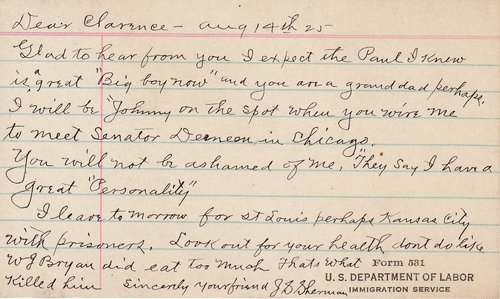 Dear Clarence - Aug 14th 25
Glad to hear from you I expect the Paul I knew
is a great "Big boy now" and you are a granddad perhaps.
I will be "Johnny on the spot when you wire me
to meet Senator Deneen in Chicago.
You will not be ashamed of me, "They say I have a
great "Personality"
I leave to morrow for St Louis perhaps Kansas City
with prisoners. Look out for your health dont do like
W J Bryan did eat too much Thats what
Killed him Sincerly Your friend J. D. Sherman
Form 531
U. S. DEPARTMENT OF LABOR
IMMIGRATION SERVICE